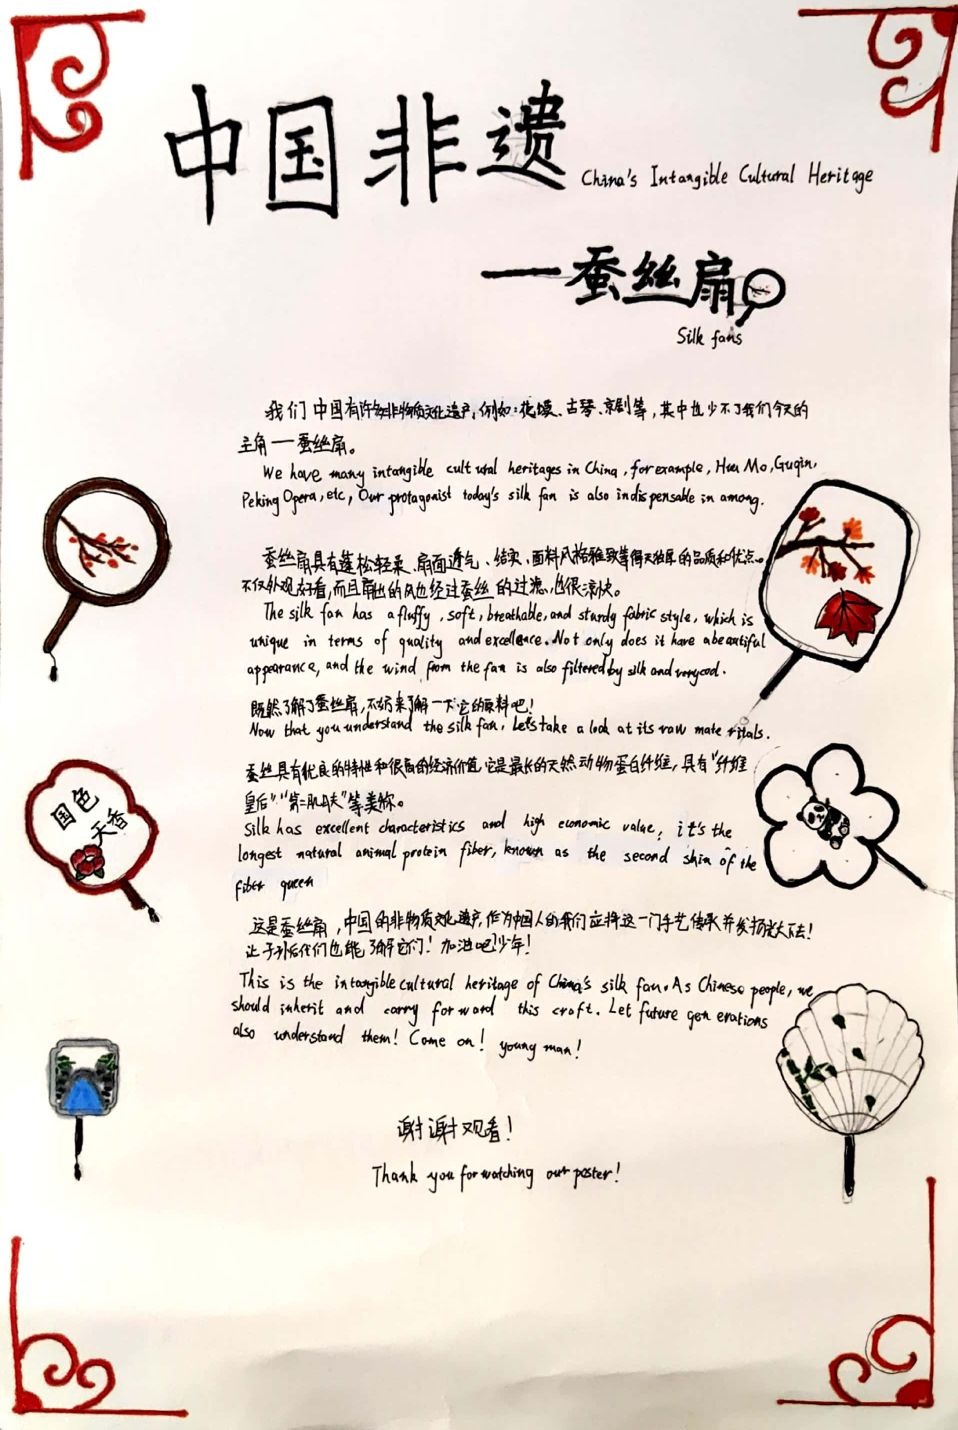 中国非遗
China's Intangible Cultural Heritage
一蚕丝扇
Silk fans
我们中国有许多非物质文化遗产,例如:花馍、古琴、京剧等,其中也少不了我们今天的
主角一一蚕丝扇。
We have many intangible cultural heritages in China, for example, Hua Mo, Guqin,
Peking Opera, etc, Our protagonist today's silk fan is also indispensable in among.
蚕丝扇具有蓬松轻柔、扇面透气、结实、面料风格雅致等得天独厚的品质和优点。
不仅外观好看,而且扇出的风也经过蚕丝的过滤,也很凉快。
The silk fan has a fluffy, soft, breathable, and sturdy fabric style, which is
unique in terms of quality and excellence. Not only does it have a beautiful
appearance, and the wind from the fan is also filtered by silk and very cool.
既然了解了蚕丝扇,不妨来了解一下它的原料吧!
Now that you understand the silk fan, Let's take a look at its raw mate ritals.
蚕丝具有优良的特性和很高的经济价值,它是最长的天然动物蛋白纤维,具有“纤维
皇后”“第二肌肤”等美称。
Silk has excellent characteristics and high economic value, it's the
longest natural animal protein fiber, known as the second skin of the
fiber queen
这是蚕丝扇,中国的非物质文化遗产,作为中国人的我们应将这一门手艺传承并发扬光大下去!
让子孙后代们也能了解它们!加油吧!少年!
This is the intangible cultural heritage of China's silk fan. As Chinese people, we
should inherit and carry forward this craft. Let future gen erations
also understand them! Come on! young man!
谢谢观看!
Thank you for watching our poster!
国色
天香